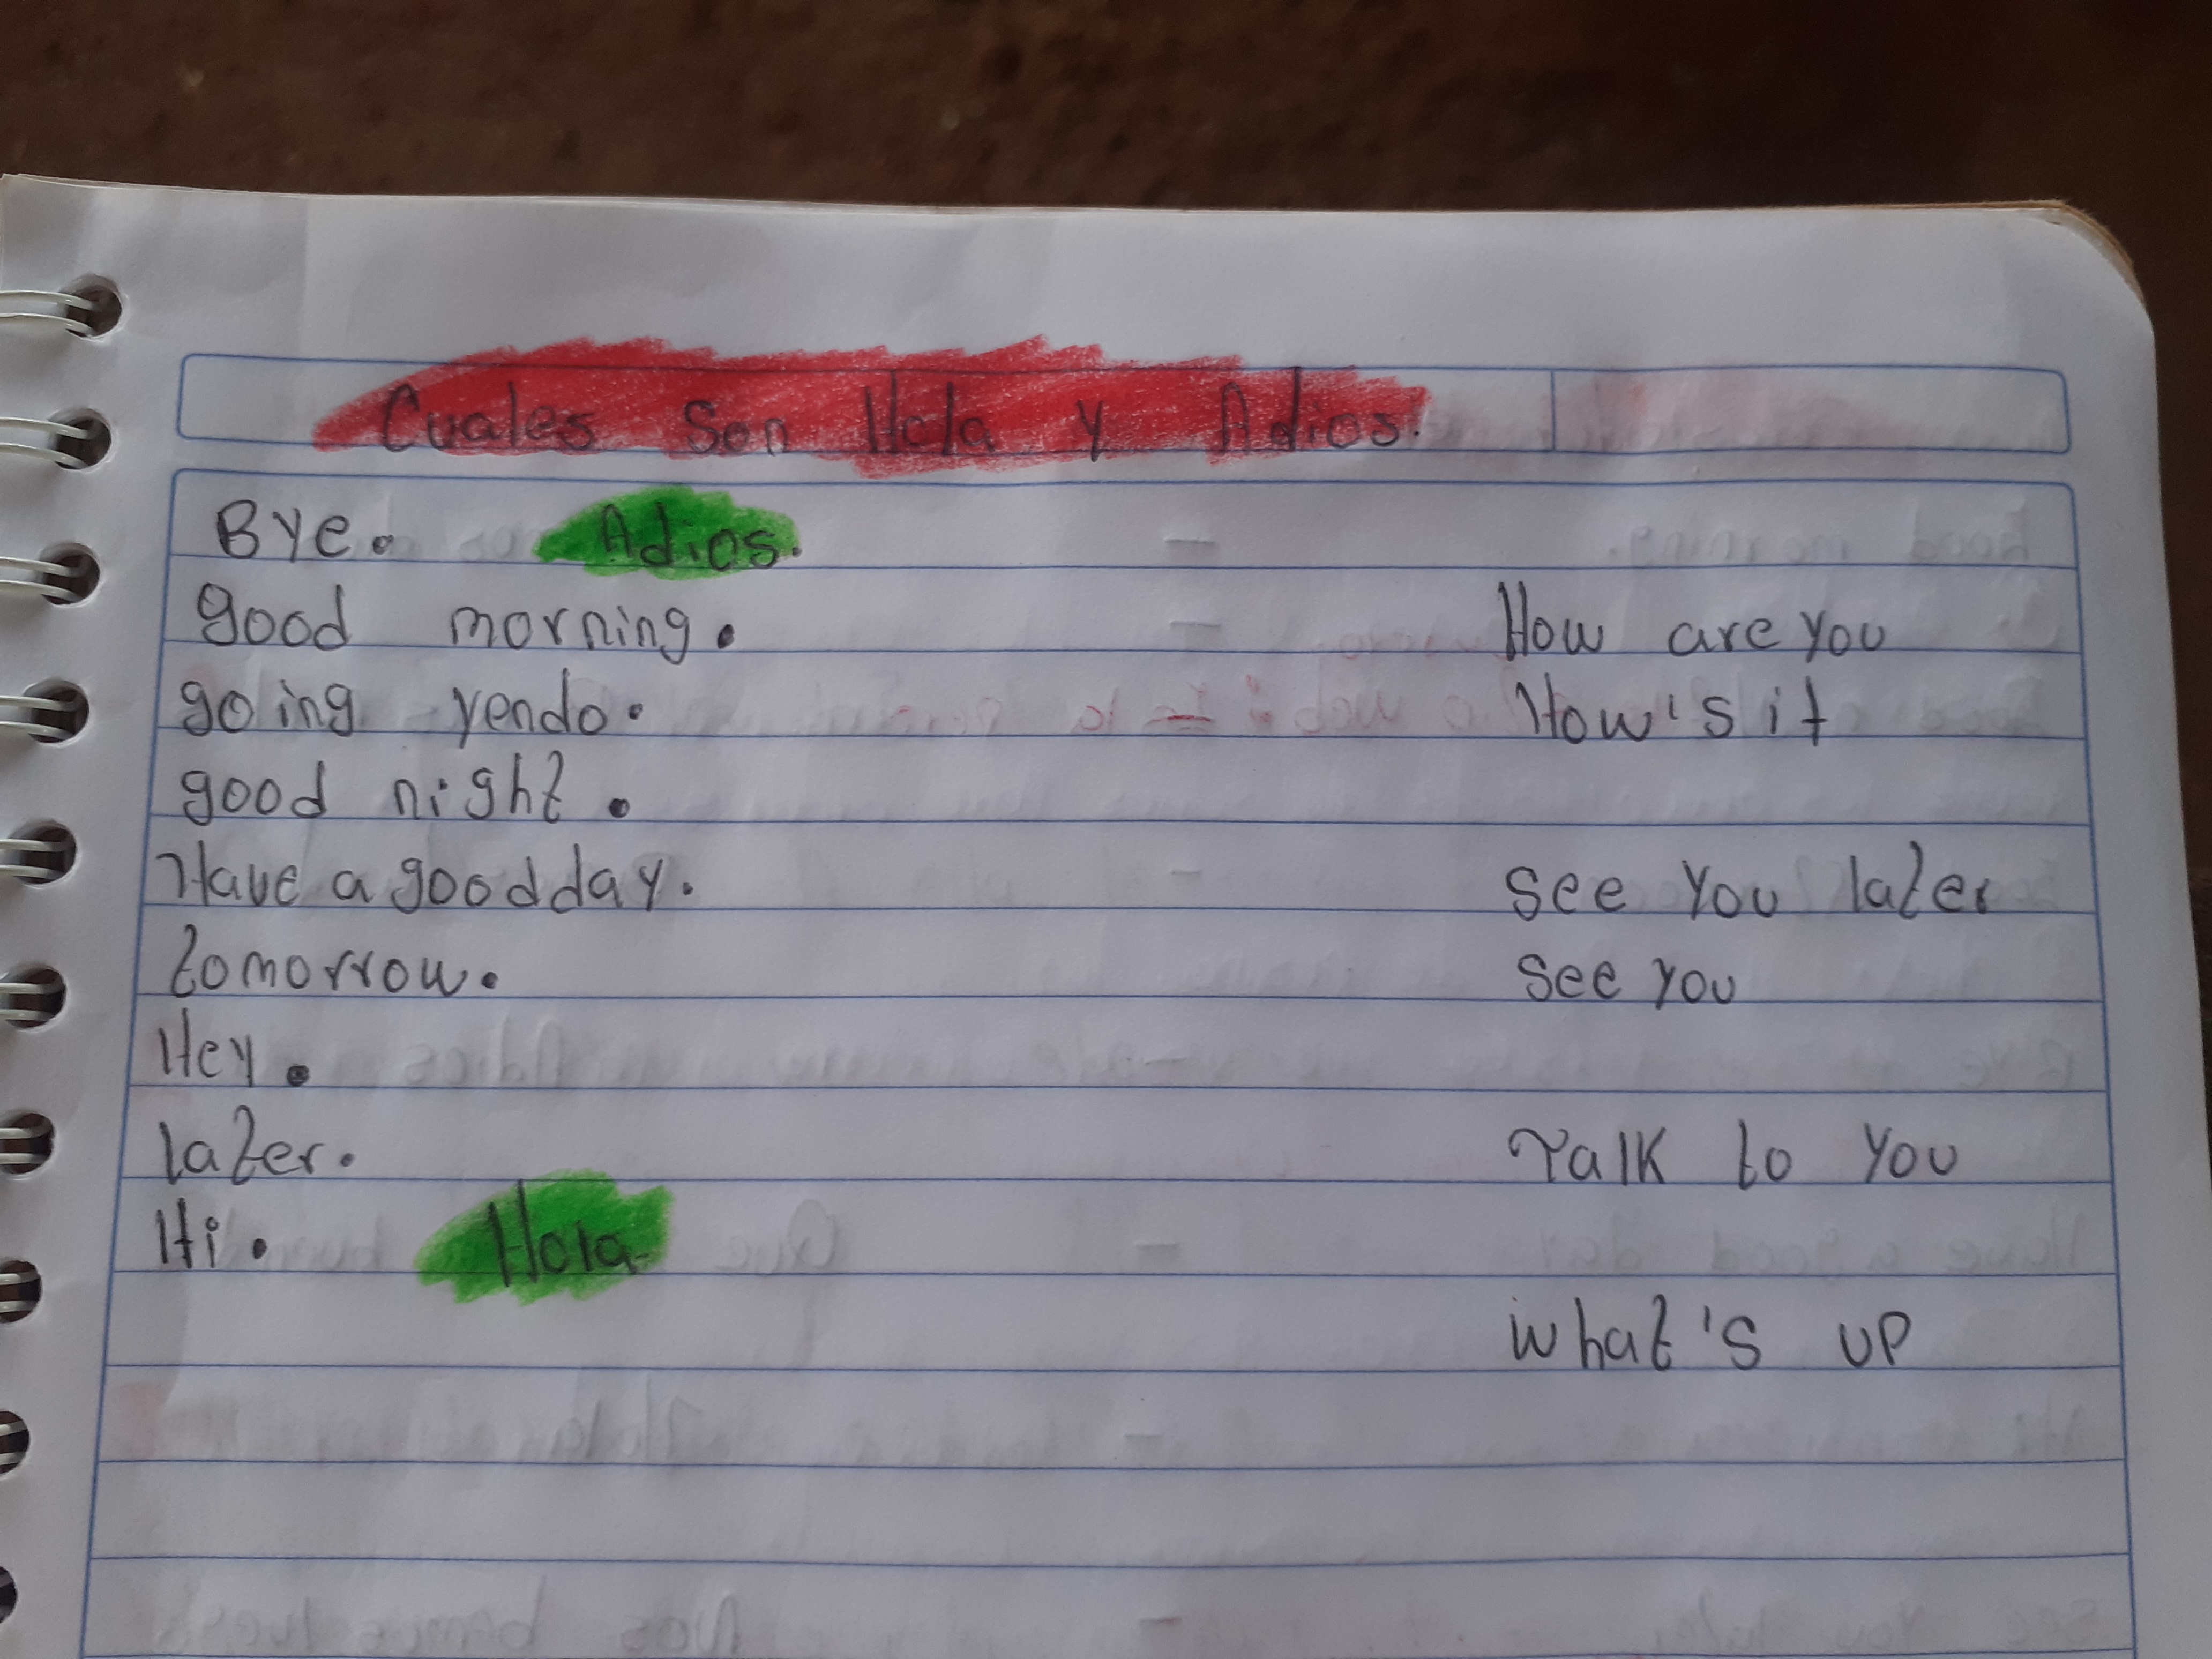 Cuales Son Hola y Adios.
Bye. Adios.
good morning. How are you
going yendo. How's it
good night.
Have a good day. see you later
tomorrow. see you
Hey.
later. Talk to you
Hi. Hola
what's up